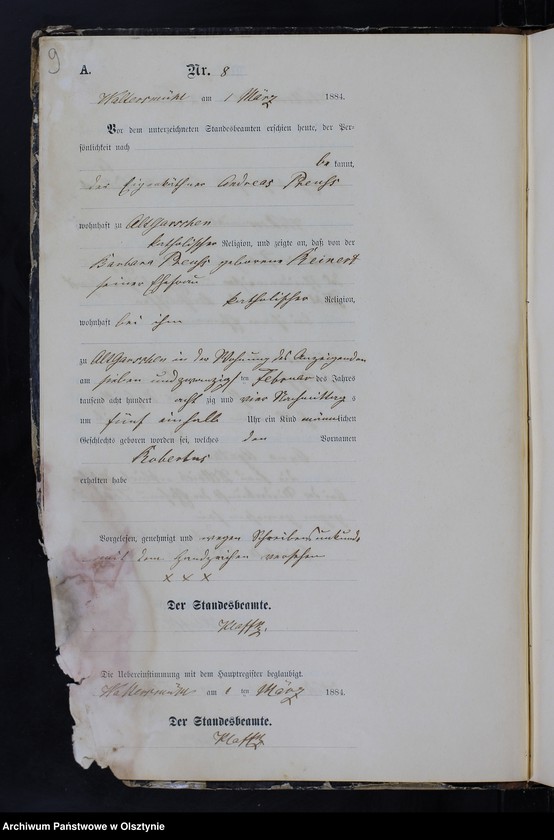 9
A.
Nr. 8
Waltersmühl am 1 März 1884.
Vor dem unterzeichneten Standesbeamten erschien heute, der Per-
sönlichkeit nach
be kannt,
der Eigenkäthner Andreas Preuß
wohnhaft zu Altgarschen
katholischer Religion, und zeigte an, daß von der
Barbara Preuß geborene Reinert
seiner Ehefrau
katholischer Religion,
wohnhaft bei ihm
zu Altgarschen in der Wohnung des Anzeigenden
am sieben und zwanzigsten Februar des Jahres
tausend acht hundert achtzig und vier Nachmittags
um fünf einhalb Uhr ein Kind männlichen
Geschlechts geboren worden sei, welches den Vornamen
Robertus
erhalten habe
Vorgelesen, genehmigt und wegen Schreibensunkunde
mit dem Handzeichen versehen
x x x
Der Standesbeamte.
Klafki.
Die Uebereinstimmung mit dem Hauptregister beglaubigt.
Waltersmühl am 1 ten März 1884.
Der Standesbeamte.
Klafki
Archiwum Państwowe w Olsztynie